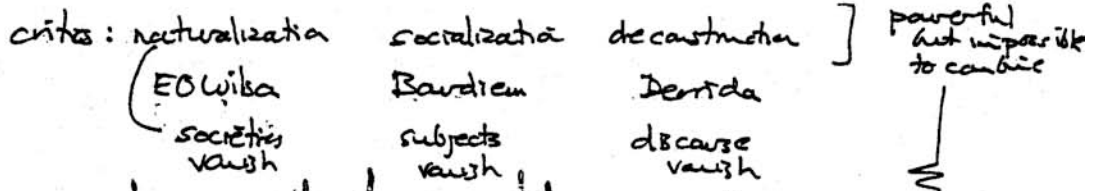 critics: naturalization socialization deconstruction ] powerful
but impossible
to combine
EOWilson Bourdieu Derrida
societies subjects discourse
vanish vanish vanish